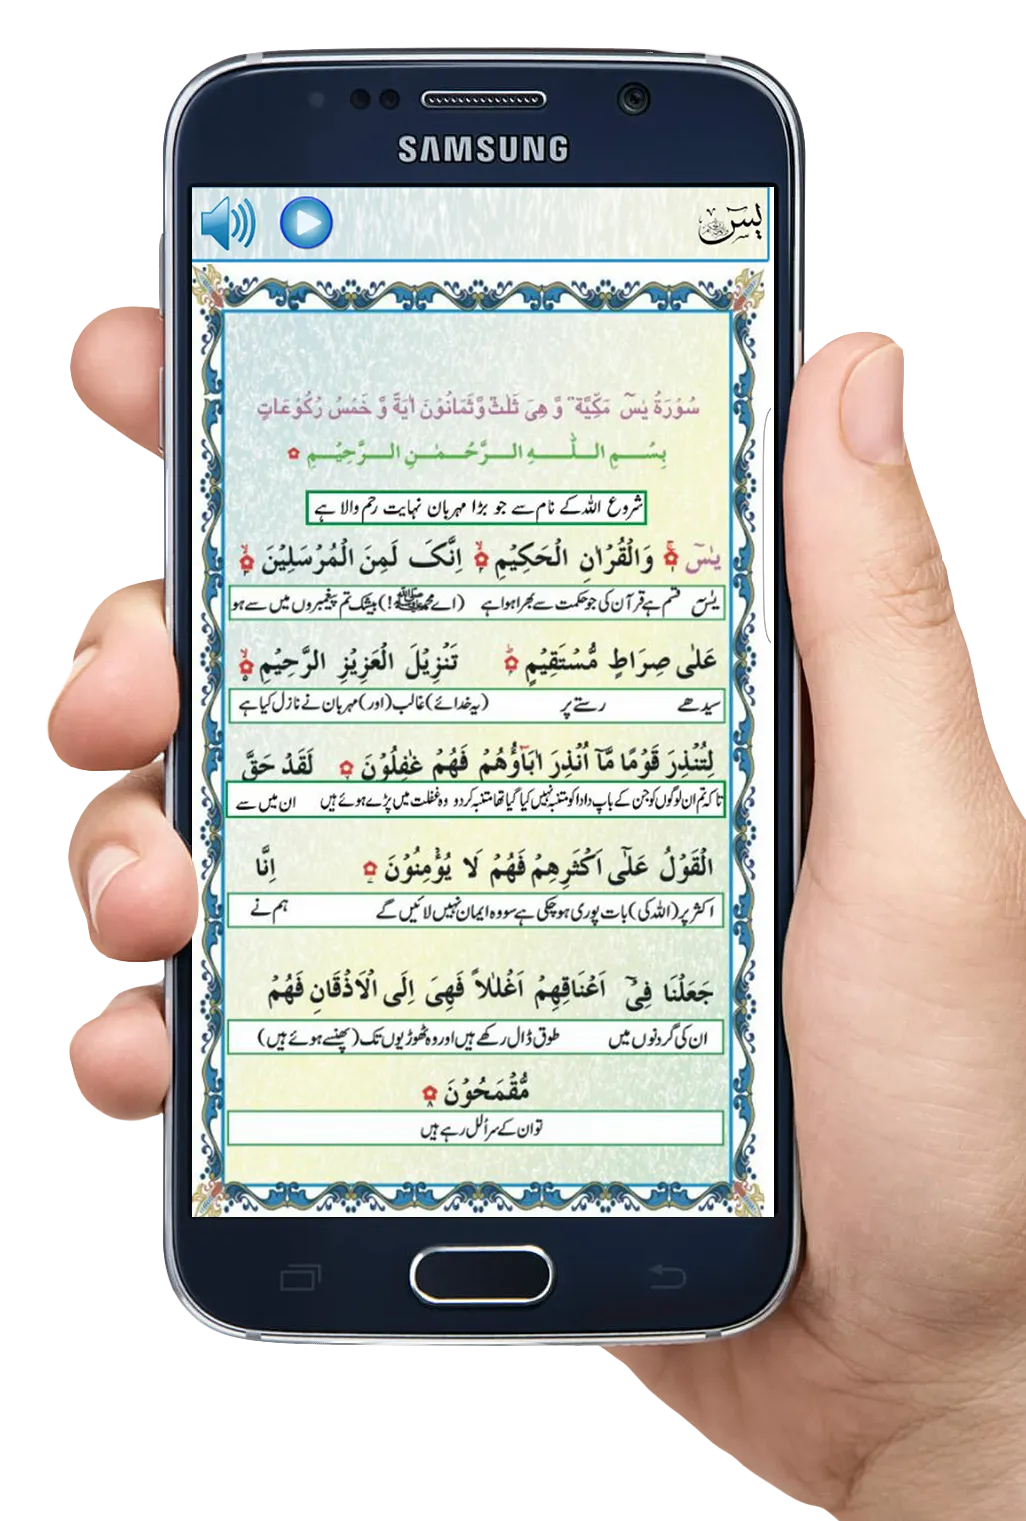 SAMSUNG
یٰسٓ
سُوۡرَۃُ یٰسٓ مَکِّیَّۃٌ وَّ هِیَ ثَلٰثٌ وَّثَمَانُوۡنَ اٰیَۃً وَّ خَمۡسُ رُکُوۡعَاتٍ
بِسۡمِ اللّٰهِ الرَّحۡمٰنِ الرَّحِیۡمِ
شروع اللہ کے نام سے جو بڑا مہربان نہایت رحم والا ہے
یٰسٓ وَالۡقُرۡاٰنِ الۡحَکِیۡمِ اِنَّکَ لَمِنَ الۡمُرۡسَلِیۡنَ
یٰسٓ قسم ہے قرآن کی جو حکمت سے بھرا ہوا ہے (اے محمدﷺ!) بیشک تم پیغمبروں میں سے ہو
عَلٰی صِرَاطٍ مُّسۡتَقِیۡمٍ تَنۡزِیۡلَ الۡعَزِیۡزِ الرَّحِیۡمِ
سیدھے رستے پر (یہ خدائے) غالب (اور) مہربان نے نازل کیا ہے
لِتُنۡذِرَ قَوۡمًا مَّاۤ اُنۡذِرَ اٰبَآؤُهُمۡ فَهُمۡ غٰفِلُوۡنَ لَقَدۡ حَقَّ
تاکہ تم ان لوگوں کو جن کے باپ دادا کو متنبہ نہیں کیا گیا تھا متنبہ کردو وہ غفلت میں پڑے ہوئے ہیں ان میں سے
الۡقَوۡلُ عَلٰۤی اَکۡثَرِهِمۡ فَهُمۡ لَا یُؤۡمِنُوۡنَ اِنَّا
اکثر پر (اللہ کی) بات پوری ہوچکی ہے سو وہ ایمان نہیں لائیں گے ہم نے
جَعَلۡنَا فِیۡۤ اَعۡنَاقِهِمۡ اَغۡلٰلًا فَهِیَ اِلَی الۡاَذۡقَانِ فَهُمۡ
ان کی گردنوں میں طوق ڈال رکھے ہیں اور وہ ٹھوڑیوں تک (پھنسے ہوئے ہیں)
مُّقۡمَحُوۡنَ
تو ان کے سر اُلل رہے ہیں